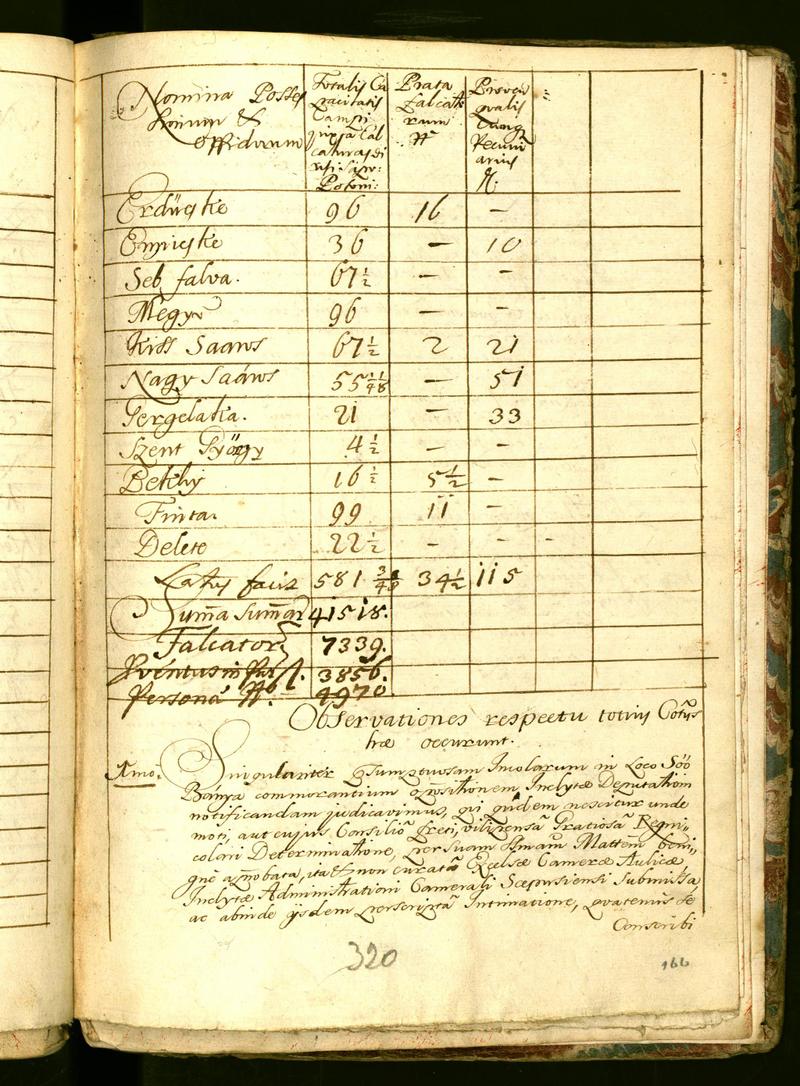 Nomina Posses
sionum &
Oppidorum
Totalis Ca
pacitatis
Campi
juxta Cal
caturas di
visi Saxo:
Posoni:
Prata
Falcato
rum
Nr
Proven
tualis
Pecuni
arius
Erdöcske 96 16 –
Ennyicske 36 – 10
Seb falva. 67½ – –
Megye 96 – –
Kiss Saaros 67½ 2 21
Nagy Saáros 55 – 51
Gergelaka. 21 – 33
Szent György 4½ – –
Bethly 16½ 5½ –
Finta. 99 11 –
Delete 22½ – – –
Latus facit 581 34½ 115
Summa Summar 41518.
Falcator 7339.
Proventus in 3856.
Persona 4970.
Observationes respectu totius Cottus
hae occurunt.
1mo: Singulariter Incolarum in Loco Sóó
Bánya commorantium opositionem, Inclytae Deputationi
notificandam judicavimus, qui quidem nescitur unde
moti, aut cujus Consilio freti, Gratiosa Regni-
colari Determinatione, per suam Mattem beni-
gne aprobata, ita & non curata Excelsae Camerae Aulicae
Inclytae Administrationi Camerali Scepusiensi Submissa,
ac abinde ijsdem perscripta Intimatione, quatenus se
Conscribi
320
166